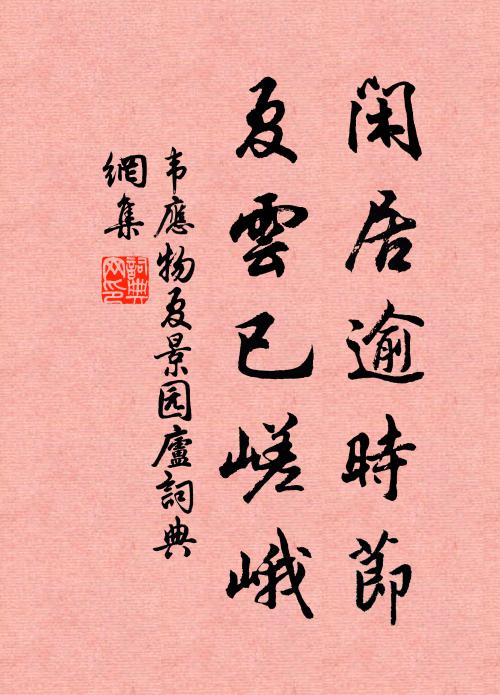 闲居逾時節
夏雲已嵯峨
韦應物夏景园廬詞典
網集
詞典
网印